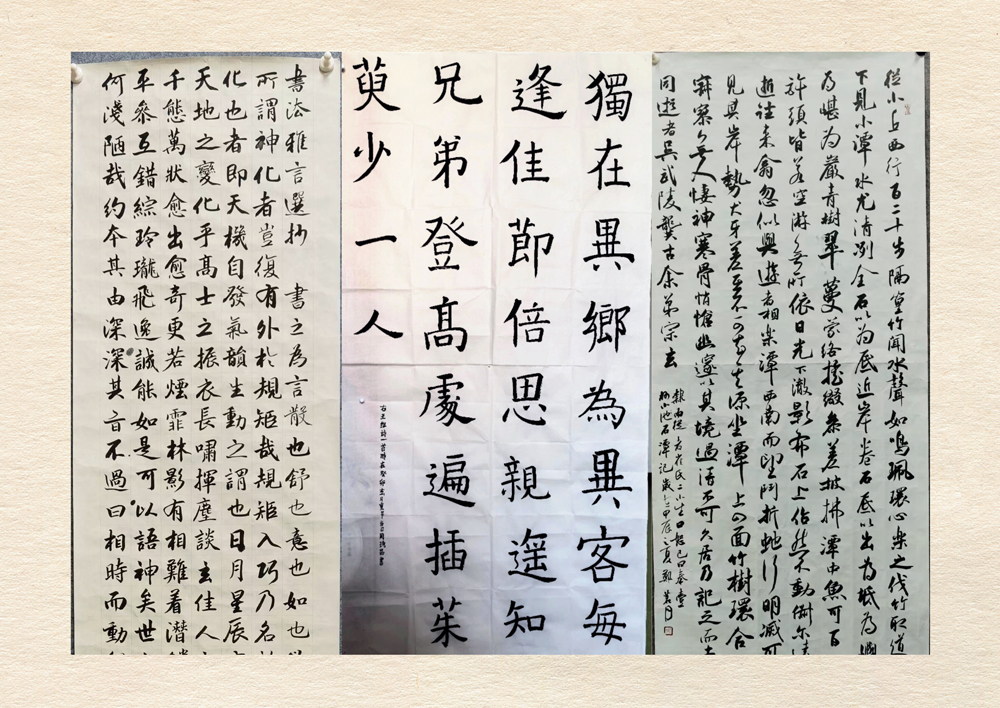 書法雅言選抄 書之為言散也舒也意也如也
所謂神化者豈復有外於規矩哉規矩入巧乃名
化也者即天機自發氣韻生動之謂也日月星辰
天地之變化乎高士之振衣長嘯揮麈談玄佳人
千態萬狀愈出愈奇更若煙霏林影有相難着潛
平叅互錯綜玲瓏飛逸誠能如是可以語神矣世
何淺陋哉約本其由深深其旨不過曰相時而動
獨在異鄉為異客每
逢佳節倍思親遥知
兄弟登高處遍插茱
萸少一人
右王維詩一首時在癸卯
從小丘西行百二十步隔篁竹聞水聲如鳴珮環心樂之伐竹取道
下見小潭水尤清冽全石以為底近岸卷石底以出為坻為嶼
為嵁為巖青樹翠蔓蒙絡搖綴參差披拂潭中魚可百
許頭皆若空游無所依日光下澈影布石上佁然不動俶尔
遊往來翕忽似與遊者相樂潭西南而望鬥折蛇行明滅可
見其岸勢犬牙差互不可知其源坐潭上四面竹樹環合
寂寥無人悽神寒骨悄愴幽邃以其境過清不可久居乃記之而去
同遊者吳武陵龔古余弟宗玄
隸而從者崔氏二小生曰恕己曰奉壹
石潭記歲甲辰之夏